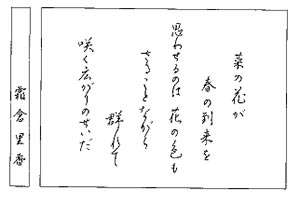 菜の花が
春の到来を
思わせるのは花の色も
さることながら
群れて
咲く広がりのせいだ
霜倉里香